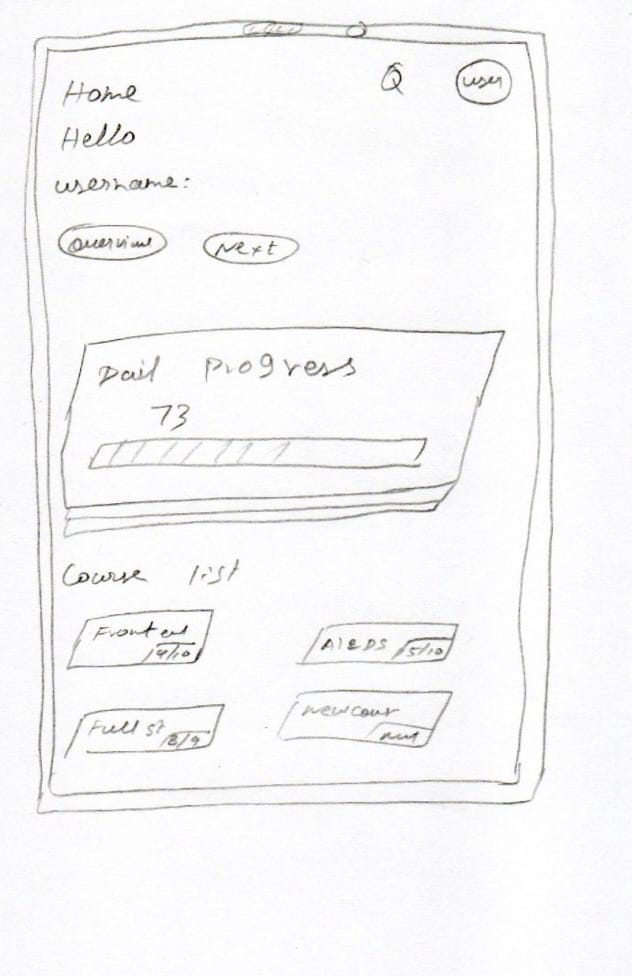 Home
user
Hello
username:
Overview
Next
Dail Progress
73
Course list
Front en
9/10
AI&DS
5/10
Full st
8/9
new cour